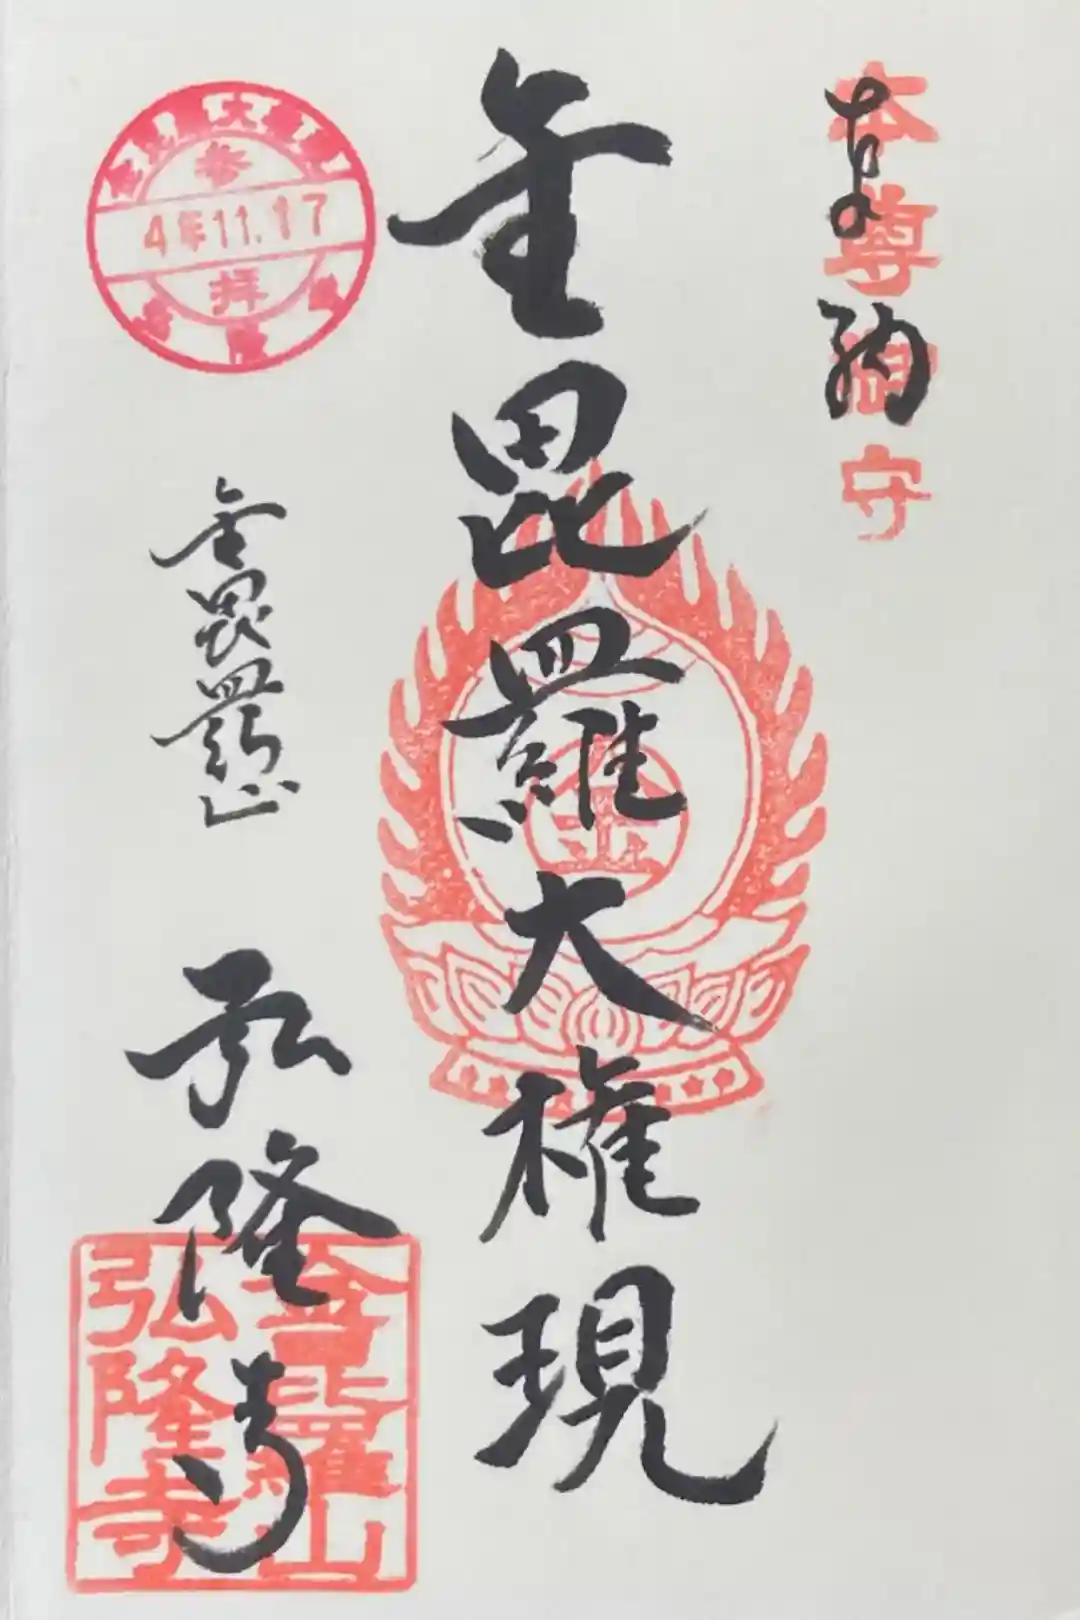 奉納
本尊御守
金毘羅大権現
金
参拝
4年11.17
金毘羅山
弘隆寺
金毘羅山
弘隆寺